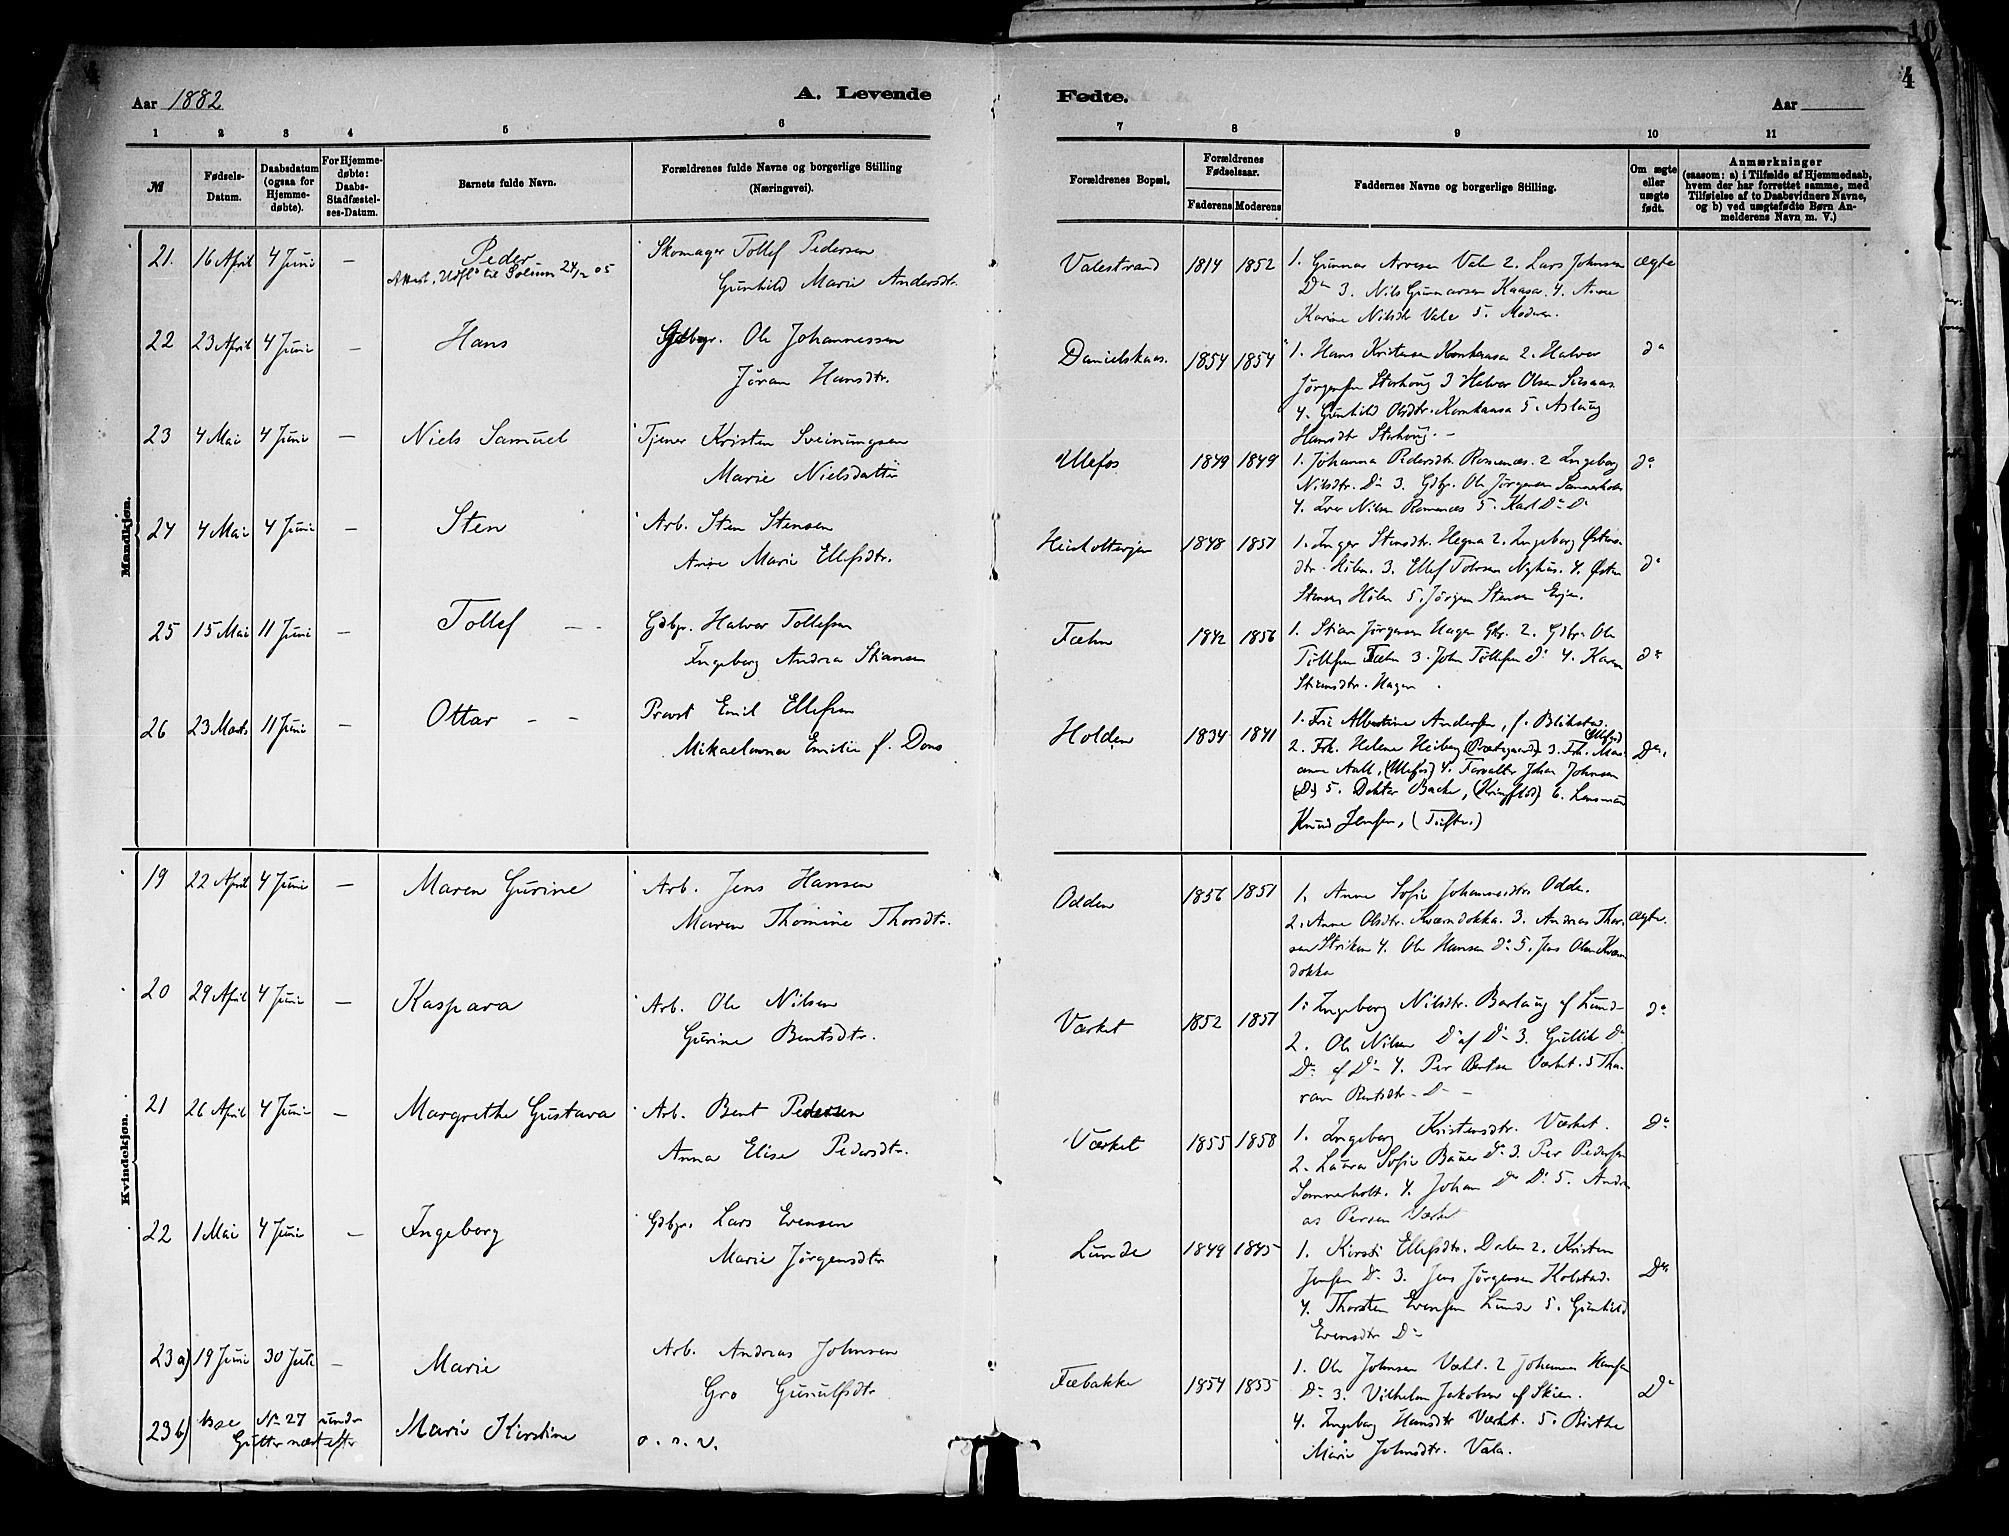 4
10
4
Aar 1882
A. Levende
Fødte.
Aar
1 2 3 4 5 6 7 8 9 10 11
№
Fødsels-
Datum.
Daabsdatum
(ogsaa for
Hjemme-
døbte).
For Hjemme-
døbte:
Daabs-
Stadfæstel-
ses-Datum.
Barnets fulde Navn.
Forældrenes fulde Navne og borgerlige Stilling
(Næringsvei).
Forældrenes Bopæl.
Forældrenes
Fødselsaar.
Faderens Moderens
Faddernes Navne og borgerlige Stilling.
Om ægte
eller
uægte
født.
Anmærkninger
(saasom: a) i Tilfælde af Hjemmedaab,
hvem der har forrettet samme, med
Tilføielse af to Daabsvidners Navne,
og b) ved uægtefødte Børn An-
melderens Navn m. V.)
Mandkjøn.
21. 16 April 4 Juni — Peder Skomager Tollef Pedersen
Attest. Udfl. til Solum 24/12 05
Gunhild Marie Andersdtr.
Valestrand 1814 1852 1. Gunnar Arvesen Vale 2. Lars Johnsen ægte
Do 3. Nils Gunnarsen Kaasa. 4. Anne
Karine Nilsdtr Vale 5. Moderen.
22 23 April 4 Juni — Hans Gdbgr. Ole Johannessen
Jøran Hansdtr.
Danielskaas. 1854 1854 1. Hans Kristensen Kornkaasa 2. Halvor do
Jørgensen Storhoug 3 Halvor Olsen
4. Gunhild Olsdtr. Kornkaasa 5. Aslaug
Hansdtr Storhoug. —
23 4 Mai 4 Juni — Niels Samuel Tjener Kristen Sveinungsen
Marie Nielsdatter
Ulefos 1849 1849 1. Johanna Pedersdtr. Romenæs. 2 Ingeborg do
Nilsdtr. Do 3. Gdbgr. Ole Jørgensen
4. Iver Nilsen Romenæs 5. Karl Do Do
24 4 Mai 4 Juni — Sten Arb. Sten Stensen
Anne Marie Ellefsdtr.
1848 1851 1. Inger Stensdtr. Hegna 2. Ingeborg Østens-
dtr. Holen. 3. Ellef Tovsen Nyhus. 4. Østen do
Stensen Holen 5. Jørgen Stensen
25 15 Mai 11 Juni — Tollef — - Gdbgr. Halvor Tollefsen
Ingeborg Andrea Stiansen
Fæhn 1842 1856 1. Stian Jørgensen Hagen Gbr. 2. Gdbr. Ole
Tollefsen Fæhn 3. John Tollefsen do 4. Karen do
Stiansdtr. Hagen .
26 23 Marts 11 Juni — Ottar - - Provst Emil Ellefsen
Mikaelovna Emilie f. Dons
Holden 1834 1841 1. Fru Albertine Andersen, f. Blikstad.
(Ulefos)
2. Frk. Helene Heiberg (Præstegaard) 3. Frk. Mari- Do.
anne Aall, (Ulefos) 4. Forvalter Johan Johnsen
(Do) 5. Doktor Backe, 6. Lensmand
Knud Jensen, (Tufte.)
Kvindekjøn.
19 22 April 4 Juni — Maren Gurine Arb. Jens Hansen
Maren Thomine Thorsdtr.
Odden 1856 1851 1. Anne Sofie Johannesdtr Odden.
2. Anne Olsdtr. Kværndokka. 3. Andreas Thor- ægte.
sen Striken 4. Ole Hansen do 5. Jens Olsen Kværn
dokka
20 29 April 4 Juni — Kaspara Arb. Ole Nilsen
Gurine Bentsdtr.
Værket 1852 1851 1. Ingeborg Nilsdtr. Barlaug af Lund- do
2. Ole Nilsen Do af Do 3. Gullik Do
Do af Do 4. Per Bentsen Værket. 5 Tho-
ran Bentsdtr. Do —
21 26 April 4 Juni — Margrethe Gustava Arb. Bent Pedersen
Anna Elise Pedersdtr.
Værket 1855 1858 1. Ingeborg Kristensdtr. Værket. Do
2. Laura Sofie Bauer Do 3. Per Pedersen
Sommerholt. 4. Johan Do Do 5. Andre
as Persen Værket
22 1 Mai 4 Juni — Ingeborg Gdbgr. Lars Evensen
Marie Jørgensdtr
Lunde 1849 1845 1. Kirsti Ellefsdtr. Dalen 2. Kristen
Jensen Do 3. Jens Jørgensen Kolstad. Do
4. Thorsten Evensen Lunde 5. Gunhild
Evensdtr Do
23 a) 19 Juni 30 Juli — Marie Arb. Andreas Johnsen
Gro Gunulfsdtr
Fæbakke 1854 1855 1. Ole Johnsen Værket. 2 Johannes Hansen
Do 3. Vilhelm Jakobsen af Skien. Do
4. Ingeborg Hansdtr Værket. 5. Birthe
Marie Johnsdtr. Vala.
23 b) No 27 under
Gutter næst efter
Marie Kirstine o. s. v.